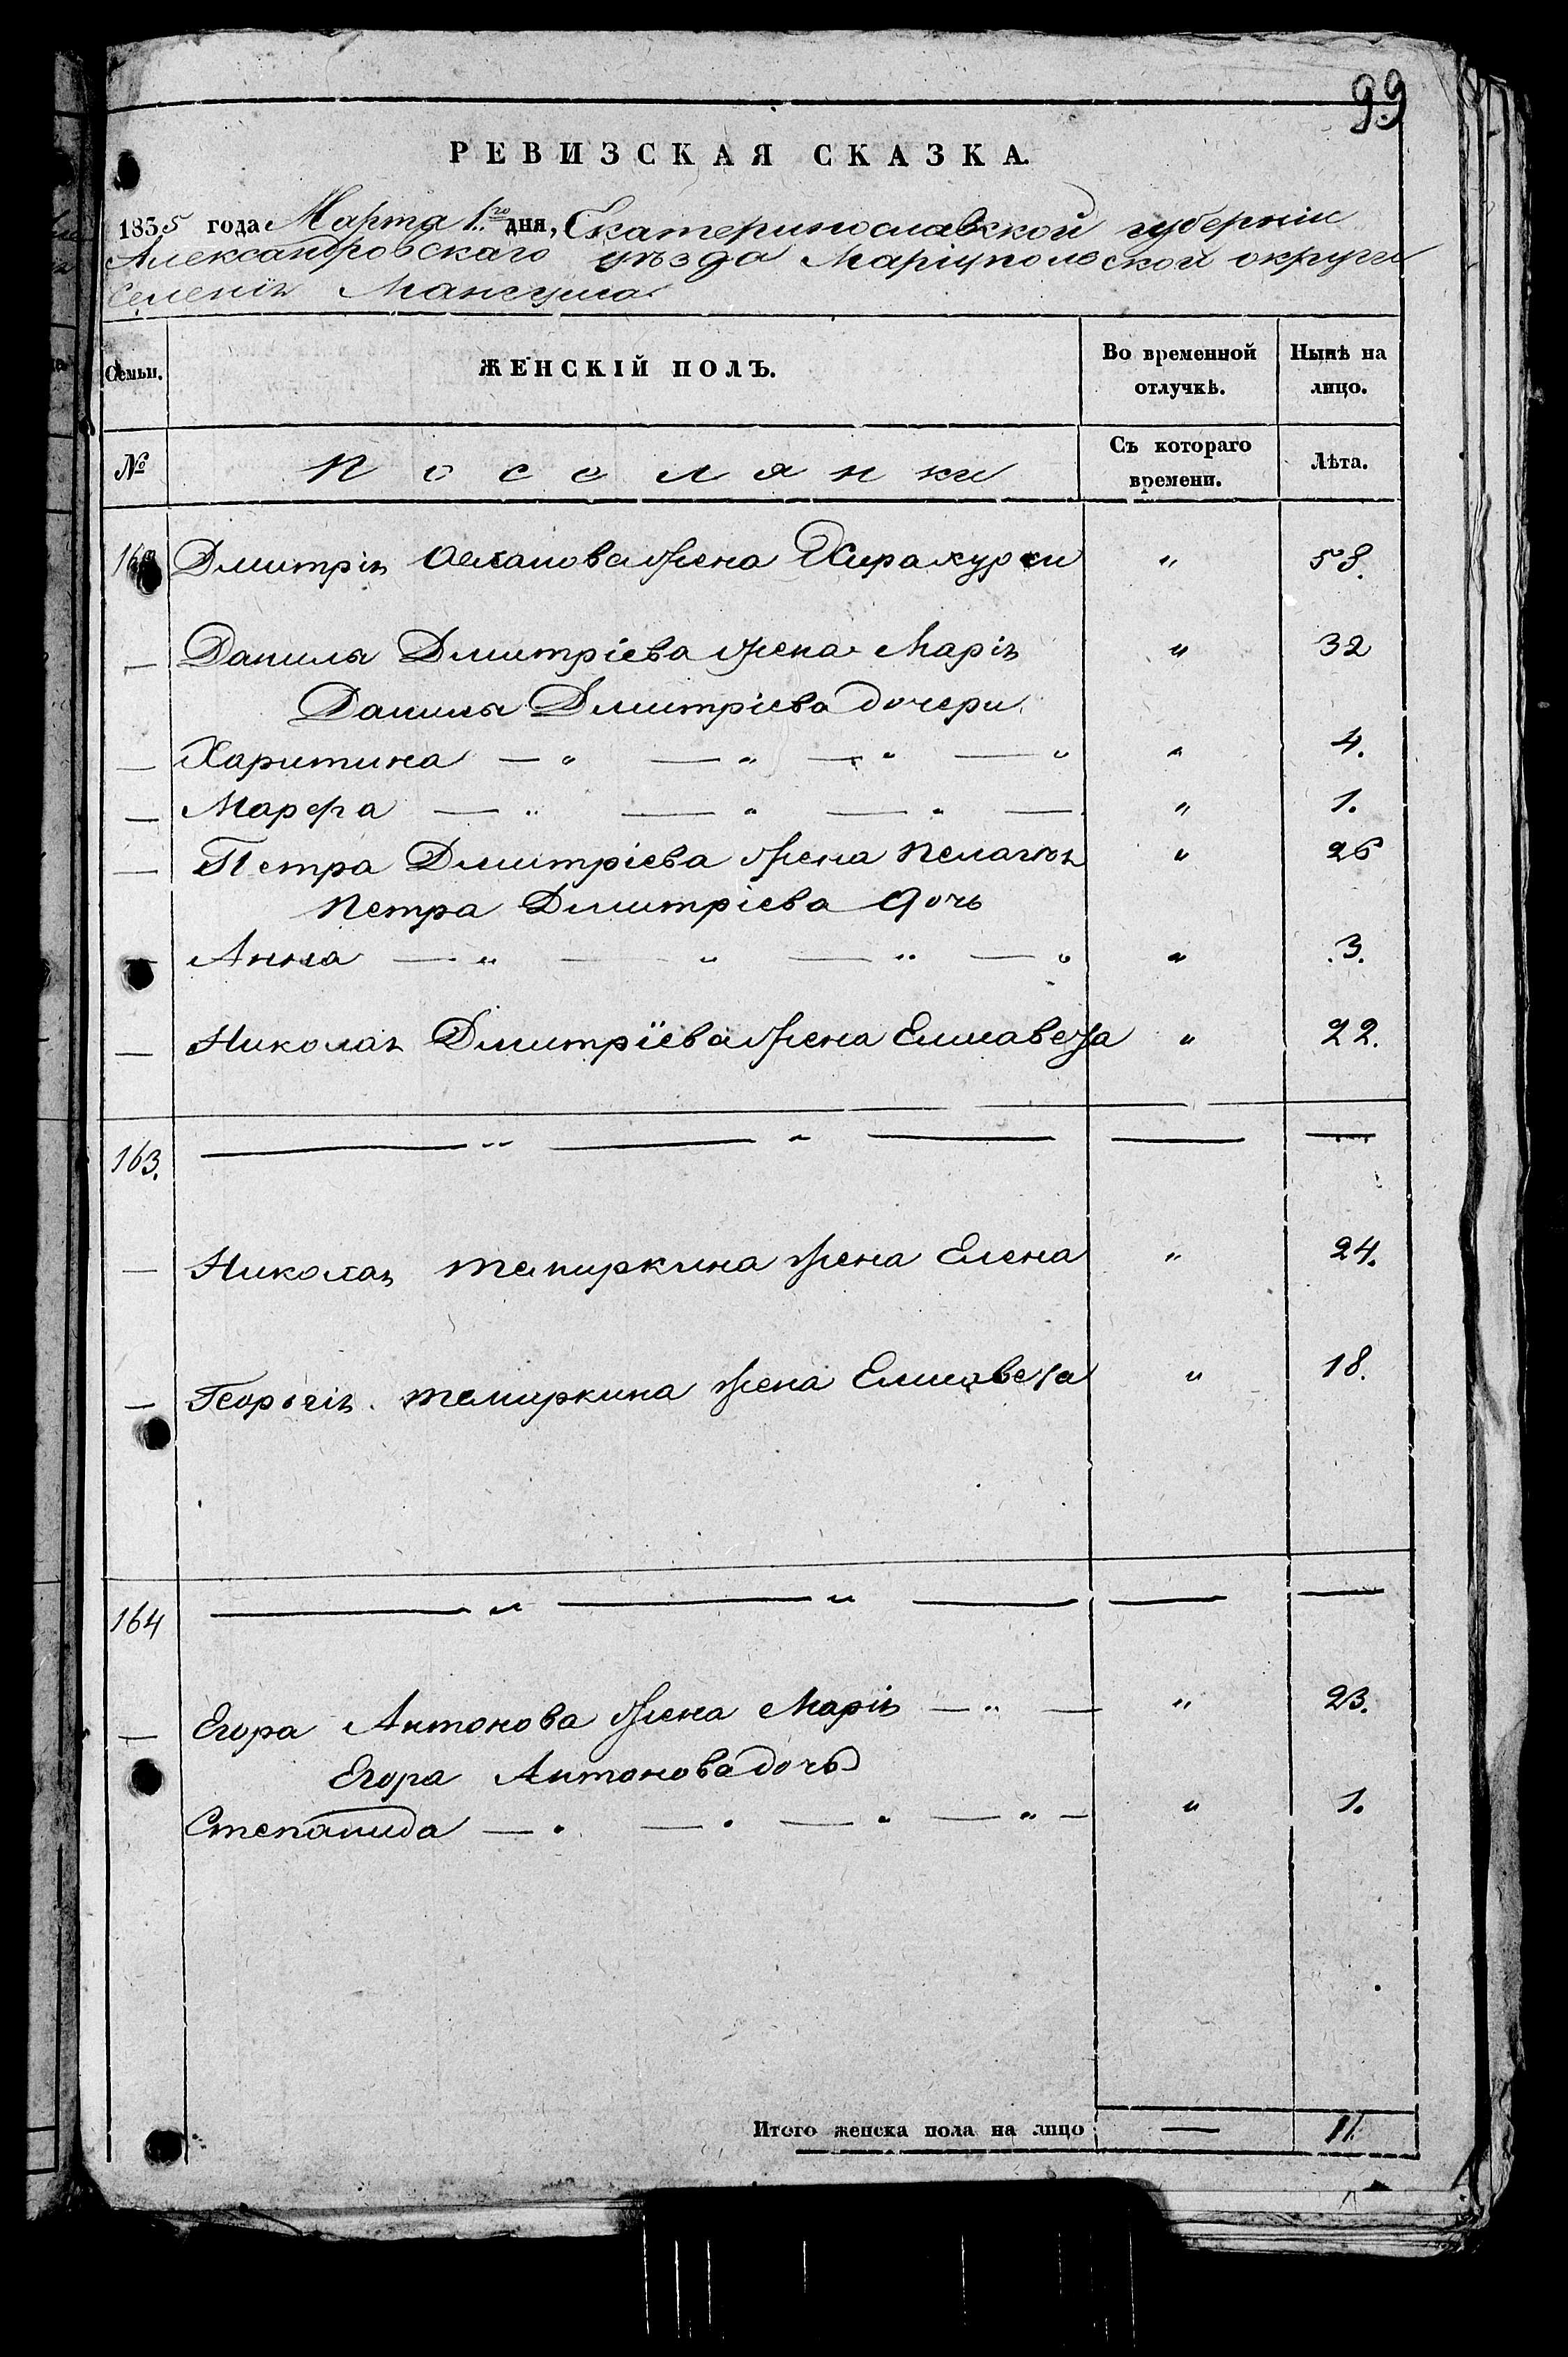 99
РЕВИЗСКАЯ СКАЗКА.
1835 года Марта 1го дня, Екатеринославской губернiи
Александровскаго уѣзда Марiупольской округи
Селенiя Мангуша
Семьи. ЖЕНСКIЙ ПОЛЪ. Во временной отлучкѣ. Нынѣ на лицо.
№ Поселянки Съ котораго времени. Лѣта.
Дмитрiя жена " 58.
— Данила Дмитрiева жена Марiя " 32
Данила Дмитрiева дочери
— Харитина — " — " — " — " " 4.
— Марфа — " — " — " — " 1.
— Петра Дмитрiева жена Пелагея " 26
Петра Дмитрiева дочь
— Анна — " — " — " — " " 3.
— Николая Дмитрiева жена Елисавета " 22.
163. — " — " — — —
— Николая Темиркина жена Елена " 24.
— Георгiя Темиркина жена Елисавета " 18.
164 — " — " — — —
— Егора Антонова жена Марiя — " — " 23.
Егора Антонова дочь
Степанида — " — " — " — " — " 1.
Итого женска пола на лицо — 11